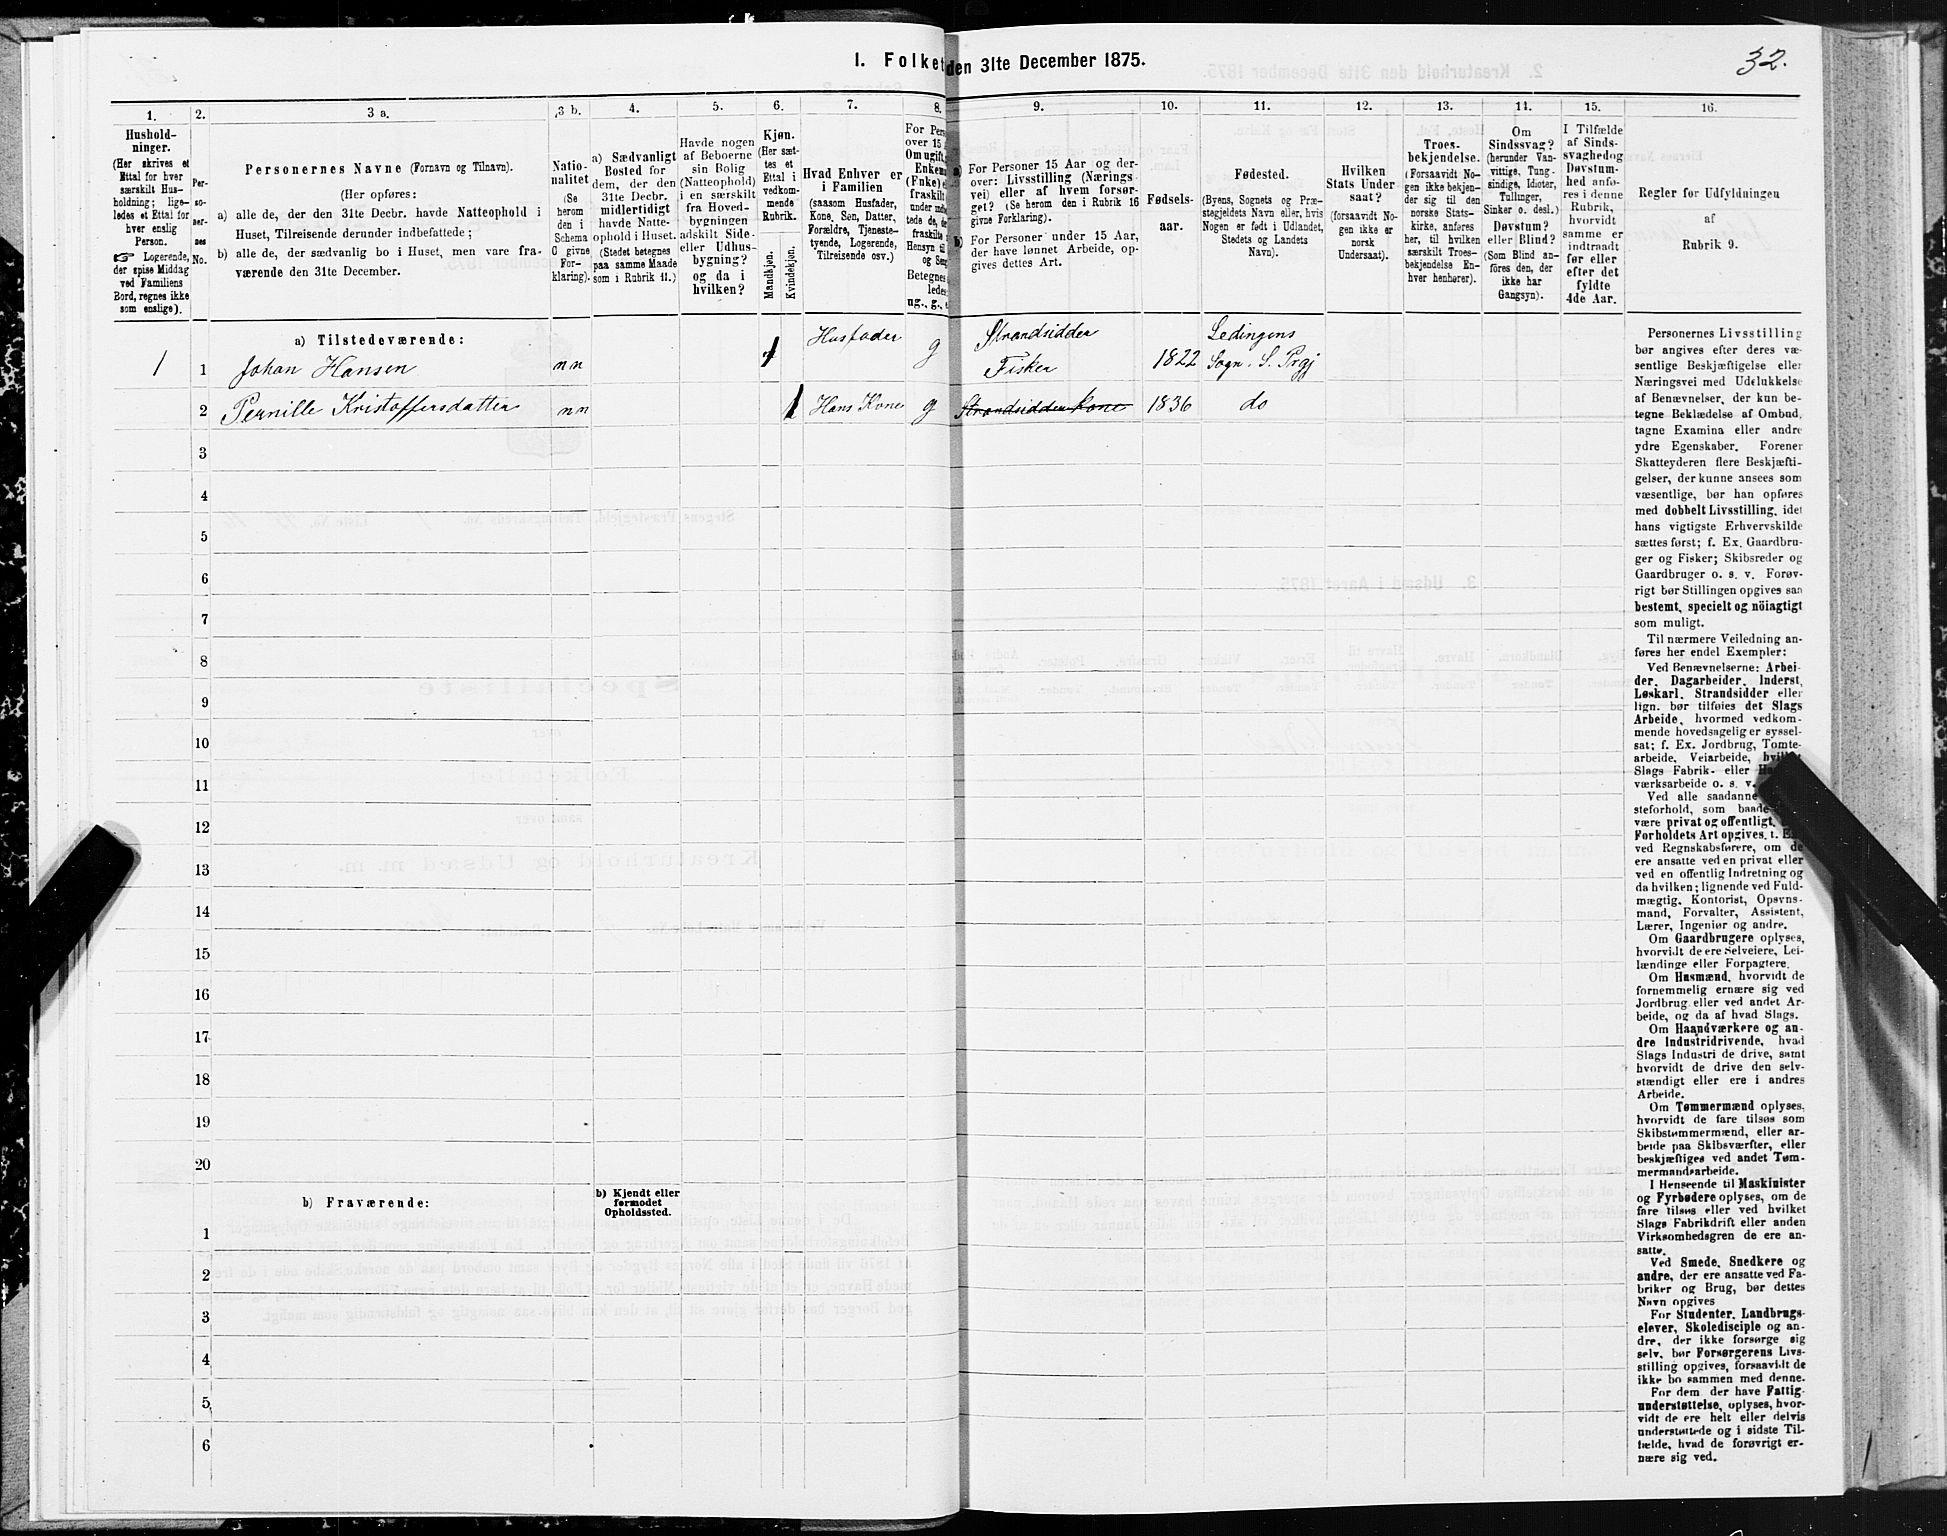 I. Folket den 31te December 1875.
32.
1.
Hushold-
ninger.
(Her skrives et
Ettal for hver
særskilt Hus-
holdning; lige-
ledes et Ettal for
hver enslig
Person.
☞ Logerende,
der spise Middag
ved Familiens
Bord, regnes ikke
som enslige).
2.
Per-
so-
ner-
nes
No.
3 a.
Personernes Navne (Fornavn og Tilnavn).
(Her opføres:
a) alle de, der den 31te Decbr. havde Natteophold i
Huset, Tilreisende derunder indbefattede;
b) alle de, der sædvanlig bo i Huset, men vare fra-
værende den 31te December.
3 b.
Natio-
nalitet
(Se
herom
den i
Schema
0 givne
For-
klaring).
4.
a) Sædvanligt
Bosted for
dem, der den
31te Decbr.
midlertidigt
havde Natte-
ophold i Huset.
(Stedet betegnes
paa samme Maade
som i Rubrik 11.)
5.
Havde nogen
af Beboerne
sin Bolig
(Natteophold)
i en særskilt
fra Hoved-
bygningen
adskilt Side-
eller Udhus-
bygning?
og da i
hvilken?
6.
Kjøn.
(Her sæt-
tes et
Ettal i
vedkom-
mende
Rubrik.
Mandkjøn.
Kvindekjøn.
7.
Hvad Enhver er
i Familien
(saasom Husfader,
Kone, Søn, Datter,
Forældre, Tjeneste-
tyende, Logerende,
Tilreisende osv.)
8.
For Pers
over 15
Om ugift,
Enkem
(Enke) e
fraskilt
under indb
tede de, de
fraskilte
Hensyn til
og Sen
Betegnes
ledes
ug., g., e
9.
a) For Personer 15 Aar og der-
over: Livsstilling (Nærings-
vei) eller af hvem forsør-
get? (Se herom den i Rubrik 16
givne Forklaring).
b) For Personer under 15 Aar,
der have lønnet Arbeide, op-
gives dettes Art.
10.
Fødsels-
aar.
11.
Fødested.
(Byens, Sognets og Præ-
stegjeldets Navn eller, hvis
Nogen er født i Udlandet,
Stedets og Landets
Navn).
12.
Hvilken
Stats Under
saat?
(forsaavidt No-
gen ikke er
norsk
Undersaat).
13.
Troes-
bekjendelse.
(Forsaavidt No-
gen ikke bekjen-
der sig til den
norske Stats-
kirke, anføres
her, til hvilken
særskilt Troes-
bekjendelse En-
hver henhører).
14.
Om
Sindssvag?
(herunder Van-
vittige, Tung-
sindige, Idioter,
Tullinger,
Sinker o. desl.)
Døvstum?
eller Blind?
(Som Blind an-
føres den, der
ikke har
Gangsyn).
15.
I Tilfælde
af Sinds-
svaghed og
Døvstum-
hed anfø-
res i denne
Rubrik,
hvorvidt
samme er
indtraadt
før eller
efter det
fyldte
4de Aar.
16.
Regler for Udfyldningen
af
Rubrik 9.
a) Tilstedeværende:
1 1 Johan Hansen nn 1 Husfader g Strandsidder
Fisker 1822 Ledingens
Sogn. S. Prgj
2 Pernille Kristoffersdatter nn 1 Hans Kone g Strandsidder Kone 1836 do
3
4
5
6
7
8
9
10
11
12
13
14
15
16
17
18
19
20
b) Fraværende:
b) Kjendt eller
formodet
Opholdssted.
1
2
3
4
5
6
Personernes Livsstilling
bør angives efter deres væ-
sentlige Beskjæftigelse eller
Næringsvei med Udelukkelse
af Benævnelser, der kun be-
tegne Beklædelse af Ombud,
tagne Examina eller andre
ydre Egenskaber. Forener
Skatteyderen flere Beskjæfti-
gelser, der kunne ansees som
væsentlige, bør han opføres
med dobbelt Livsstilling, idet
hans vigtigste Erhvervskilde
sættes først; f. Ex. Gaardbru-
ger og Fisker; Skibsreder og
Gaardbruger o. s. v. Forøv-
rigt bør Stillingen opgives saa
bestemt, specielt og nöiagtigt
som muligt.
Til nærmere Veiledning an-
føres her endel Exempler:
Ved Benævnelserne: Arbei-
der, Dagarbeider, Inderst,
Løskarl, Strandsidder eller
lign. bør tilføies det Slags
Arbeide, hvormed vedkom-
mende hovedsagelig er syssel-
sat; f. Ex. Jordbrug, Tomte-
arbeide, Veiarbeide, hvilket
Slags Fabrik- eller Ha
værksarbeide o. s. v.
Ved alle saadanne
steforhold, som baade
være privat og offentligt,
Forholdets Art opgives, t. E
ved Regnskabsførere, om de
ere ansatte ved en privat eller
ved en offentlig Indretning og
da hvilken; lignende ved Fuld-
mægtig, Kontorist, Opsyns-
mand, Forvalter, Assistent,
Lærer, Ingeniør og andre.
Om Gaardbrugere oplyses,
hvorvidt de ere Selveiere, Lei-
lændinge eller Forpagtere.
Om Husmænd, hvorvidt de
fornemmelig ernære sig ved
Jordbrug eller ved andet Ar-
beide, og da af hvad Slags.
Om Haandværkere og an-
dre Industridrivende, hvad
Slags Industri de drive, samt
hvorvidt de drive den selv-
stændigt eller ere i andres
Arbeide.
Om Tømmermænd oplyses,
hvorvidt de fare tilsøs som
Skibstømmermænd, eller ar-
beide paa Skibsværfter, eller
beskjæftiges ved andet Tøm-
mermandsarbeide.
I Henseende til Maskinister
og Fyrbødere oplyses, om de
fare tilsøs eller ved hvilket
Slags Fabrikdrift eller anden
Virksomhedsgren de ere an-
satte.
Ved Smede, Snedkere og
andre, der ere ansatte ved Fa-
briker og Brug, bør dettes
Navn opgives
For Studenter, Landbrugs-
elever, Skoledisciple og an-
dre, der ikke forsørge sig
selv, bør Forsørgerens Livs-
stilling opgives, forsaavidt de
ikke bo sammen med denne.
For dem, der have Fattig-
understøttelse, oplyses, hvor-
vidt de ere helt eller delvis
understøttede og i sidste Til-
fælde, hvad de forøvrigt er-
nære sig ved.